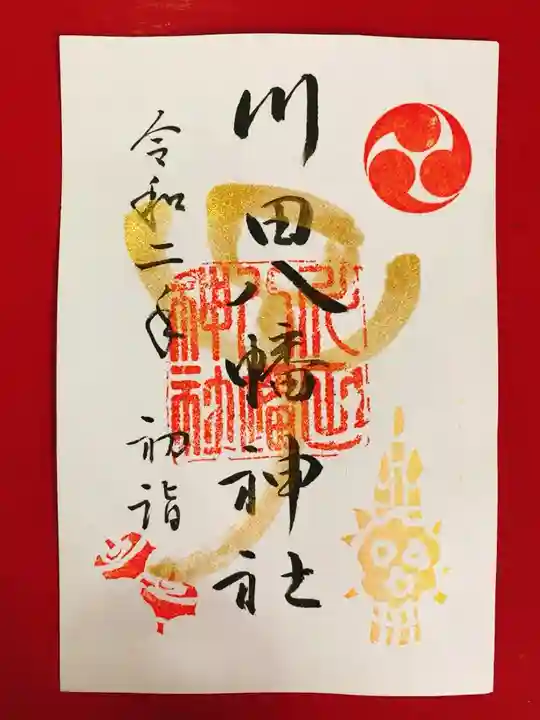 川田八幡神社
令和二年 初詣
川田八幡神社